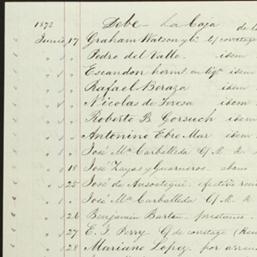 1872 Debe La Caja de la
Junio 17 Graham Watson y Ca. c/ corretage
" " Pedro del Valle idem
" " Escandon herms. en liqn. idem
" " Rafael Beraza idem
" " Nicolas de Teresa idem
" " Roberto B. Gorsuch idem
" " Antonino Ebro Mar idem
" " José Ma. Carballeda
" 18 José Zayas y Guarneros abono
" 25 José de Ansoategui efectivo
" " José Ma. Carballeda
" 26 Benjamin Barton
" 27 E. T. Perry Cta de corretage
" 28 Mariano Lopez por